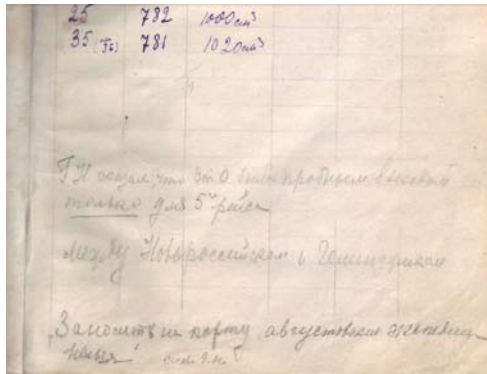 25 782 1000 cm³
35 781 1020 cm³
сказал, что это были пробным
только для 5 рейса
между Новороссийском и Геленджиком
"Заносить на карту августовские
нельзя"